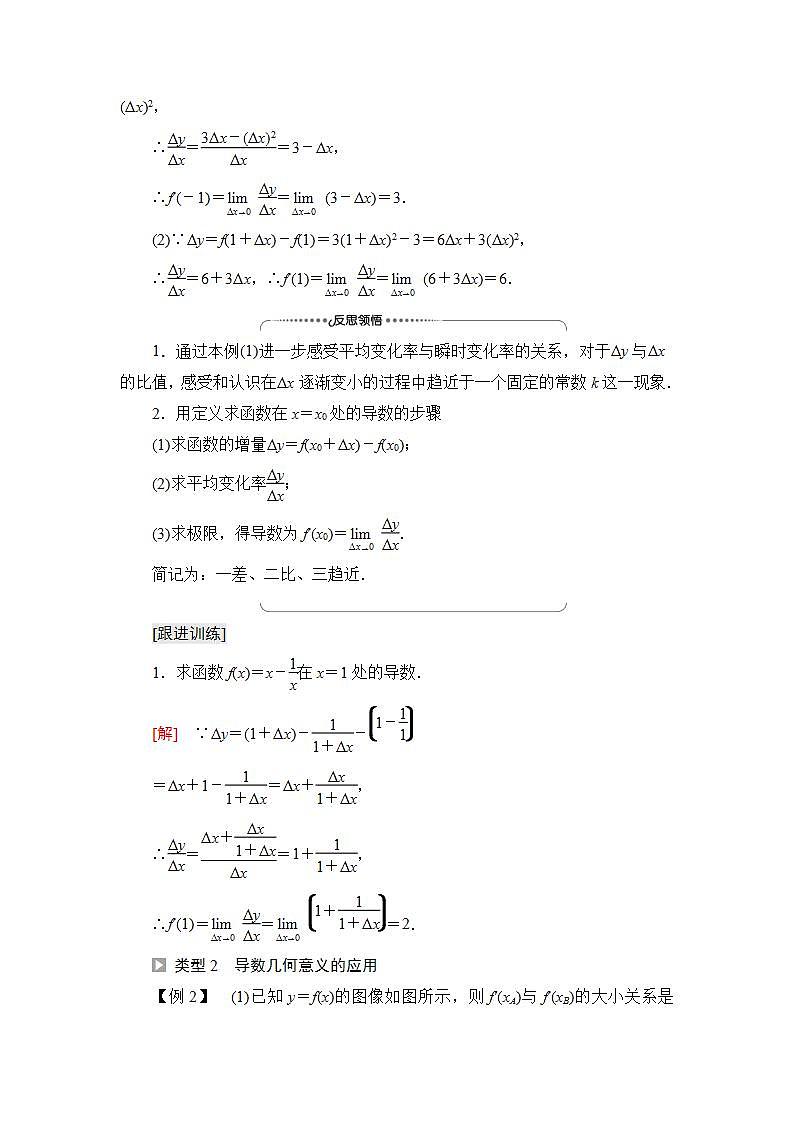 (Δx)²,
∴Δy/Δx=(3Δx-(Δx)²)/Δx=3-Δx,
∴f′(-1)=lim Δx→0 Δy/Δx=lim Δx→0 (3-Δx)=3.
(2)∵Δy=f(1+Δx)-f(1)=3(1+Δx)²-3=6Δx+3(Δx)²,
∴Δy/Δx=6+3Δx，∴f′(1)=lim Δx→0 Δy/Δx=lim Δx→0 (6+3Δx)=6.
反思领悟
1．通过本例(1)进一步感受平均变化率与瞬时变化率的关系，对于Δy与Δx
的比值，感受和认识在Δx逐渐变小的过程中趋近于一个固定的常数k这一现象．
2．用定义求函数在x=x₀处的导数的步骤
(1)求函数的增量Δy=f(x₀+Δx)-f(x₀)；
(2)求平均变化率Δy/Δx；
(3)求极限，得导数为f′(x₀)=lim Δx→0 Δy/Δx.
简记为：一差、二比、三趋近．
[跟进训练]
1．求函数f(x)=x-1/x在x=1处的导数．
[解] ∵Δy=(1+Δx)-1/(1+Δx)-(1-1/1)
=Δx+1-1/(1+Δx)=Δx+Δx/(1+Δx),
∴Δy/Δx=(Δx+Δx/(1+Δx))/Δx=1+1/(1+Δx),
∴f′(1)=lim Δx→0 Δy/Δx=lim Δx→0 (1+1/(1+Δx))=2.
类型2 导数几何意义的应用
【例2】 (1)已知y=f(x)的图像如图所示，则f′(x_A)与f′(x_B)的大小关系是